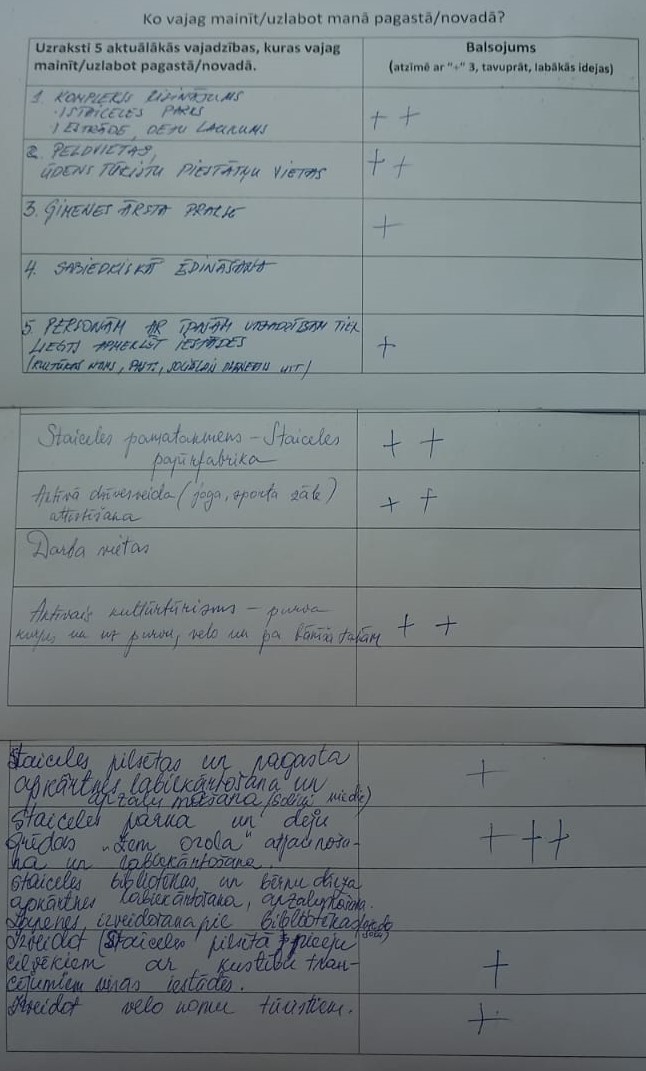 Ko vajag mainīt/uzlabot manā pagastā/novadā?
Uzraksti 5 aktuālākās vajadzības, kuras vajag
mainīt/uzlabot pagastā/novadā.
Balsojums
(atzīmē ar "+" 3, tavuprāt, labākās idejas)
1. KOMPLEKSS RISINĀJUMS
STAICELES PARKS
ESTRĀDE, DEJU LAUKUMS
+ +
2. PELDVIETAS,
ŪDENS TŪRISTU PIESTĀTŅU VIETAS
+ +
3. ĢIMENES ĀRSTA PRAKSE
+
4. SABIEDRISKĀ ĒDINĀŠANA
5. PERSONĀM AR ĪPAŠĀM VAJADZĪBĀM TIEK
LIEGTS APMEKLĒT IESTĀDES
/KULTŪRAS NAMS, PASTS, SOCIĀLAIS DIENESTS UTT/
+
Staiceles pamatakmens – Staiceles
papīrfabrika
+ +
Aktīvā dzīvesveida (joga, sporta zāle)
attīstīšana
+ +
Darba vietas
Aktīvais kultūrtūrisms – purva
kurpes un uz purvu, velo un pa takām
+ +
Staiceles pilsētas un pagasta
apkārtnes labiekārtošana un
apzaļumošana (soliņi,
+
Staiceles parka un deju
grīdas "Zem ozola" atjaunoša-
na un labiekārtošana.
+ + +
Staiceles bibliotēkas un bērnu dārza
apkārtnes labiekārtošana, apzaļumošana.
Lapenes izveidošana pie bibliotēkas
Izveidot Staiceles pilsētā pieeju
cilvēkiem ar kustību trau-
cējumiem visās iestādēs.
+
Izveidot velo nomu tūristiem.
+